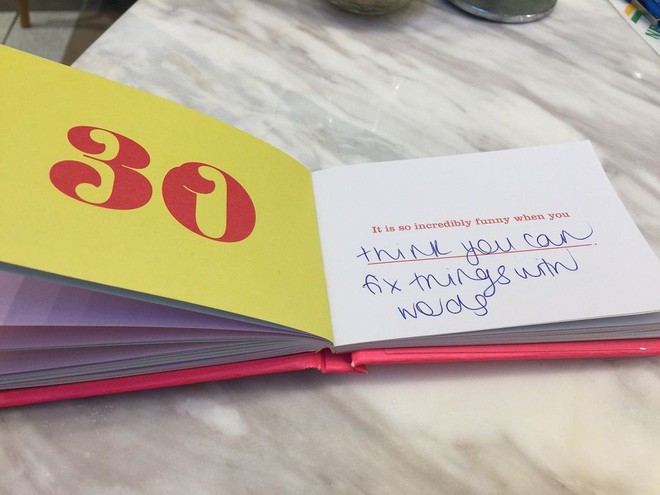 30
It is so incredibly funny when you
think you can.
fix things with
words